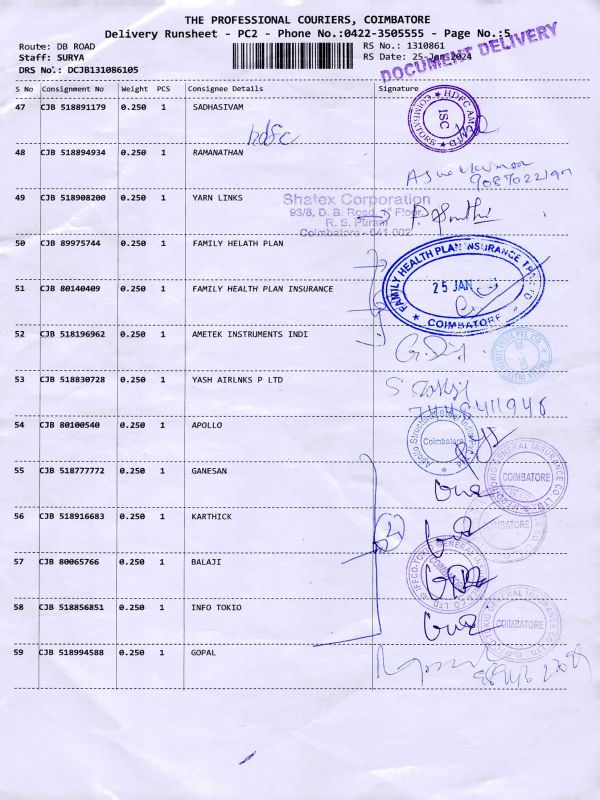 THE PROFESSIONAL COURIERS, COIMBATORE
Delivery Runsheet - PC2 - Phone No.:0422-3505555 - Page No.:5
Route: DB ROAD
RS No.: 1310861
Staff: SURYA
RS Date: 25-Jan-2024
DRS No.: DCJB131086105
DOCUMENT DELIVERY
S No Consignment No Weight PCS Consignee Details Signature
47 CJB 518891179 0.250 1 SADHASIVAM
hdfc
COIMBATORE ISC
48 CJB 518894934 0.250 1 RAMANATHAN
49 CJB 518908200 0.250 1 YARN LINKS
Shatex Corporation
93/6, D. B. Road, 1st Floor,
R. S. Puram
Coimbatore - 641 002
50 CJB 89975744 0.250 1 FAMILY HELATH PLAN
51 CJB 80140409 0.250 1 FAMILY HEALTH PLAN INSURANCE
FAMILY HEALTH PLAN INSURANCE
25 JAN
COIMBATORE
52 CJB 518196962 0.250 1 AMETEK INSTRUMENTS INDI
53 CJB 518830728 0.250 1 YASH AIRLNKS P LTD
54 CJB 80100540 0.250 1 APOLLO
Coimbatore
55 CJB 518777772 0.250 1 GANESAN
IFFCO-TOKIO GENERAL INSURANCE CO. LTD.
COIMBATORE
56 CJB 518916683 0.250 1 KARTHICK
COIMBATORE
57 CJB 80065766 0.250 1 BALAJI
IFFCO-TOKIO GENERAL INSURANCE CO. LTD.
58 CJB 518856851 0.250 1 INFO TOKIO
IFFCO-TOKIO GENERAL INSURANCE CO. LTD.
COIMBATORE
59 CJB 518994588 0.250 1 GOPAL